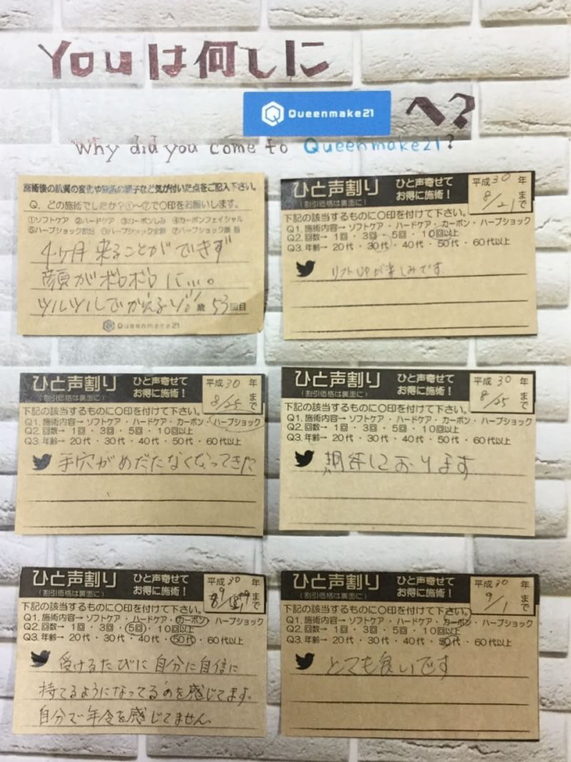 Youは何しに
Queenmake21 へ?
Why did you come to Queenmake21?
施術後の肌質の変化や
など気が付いた点をご記入下さい。
Q. どの施術でしたか?①〜⑦で○印をお願いします。
①ソフトケア ②ハードケア ③カーボンしみ ④カーボンフェイシャル
4ヶ月来ることができず
顔がボロボロに…。
ツルツルでかえるゾ!! 歳 53回目
Queenmake21
ひと声割り ひと声寄せて 平成30年
(割引価格は裏面に) お得に施術! 8/21まで
下記の該当するものに○印を付けて下さい。
Q1. 施術内容→ ソフトケア・ハードケア・カーボン・ハーブショック
Q2. 回数→ 1回・3回・5回・10回以上
Q3. 年齢→ 20代・30代・40代・50代・60代以上
リフトUPが楽しみです
ひと声割り ひと声寄せて 平成30年
(割引価格は裏面に) お得に施術! 8/25まで
下記の該当するものに○印を付けて下さい。
Q1. 施術内容→ ソフトケア・ハードケア・カーボン・ハーブショック
Q2. 回数→ 1回・3回・5回・10回以上
Q3. 年齢→ 20代・30代・40代・50代・60代以上
毛穴がめだたなくなってきた
ひと声割り ひと声寄せて 平成30年
(割引価格は裏面に) お得に施術! 8/25まで
下記の該当するものに○印を付けて下さい。
Q1. 施術内容→ ソフトケア・ハードケア・カーボン・ハーブショック
Q2. 回数→ 1回・3回・5回・10回以上
Q3. 年齢→ 20代・30代・40代・50代・60代以上
期待しております
ひと声割り ひと声寄せて 平成30年
(割引価格は裏面に) お得に施術! まで
下記の該当するものに○印を付けて下さい。
Q1. 施術内容→ ソフトケア・ハードケア・カーボン・ハーブショック
Q2. 回数→ 1回・3回・5回・10回以上
Q3. 年齢→ 20代・30代・40代・50代・60代以上
受けるたびに自分に自信に
持てるようになってるのを感じてます。
自分で年令を感じてません。
ひと声割り ひと声寄せて 平成30年
(割引価格は裏面に) お得に施術! 9/1まで
下記の該当するものに○印を付けて下さい。
Q1. 施術内容→ ソフトケア・ハードケア・カーボン・ハーブショック
Q2. 回数→ 1回・3回・5回・10回以上
Q3. 年齢→ 20代・30代・40代・50代・60代以上
とても良いです